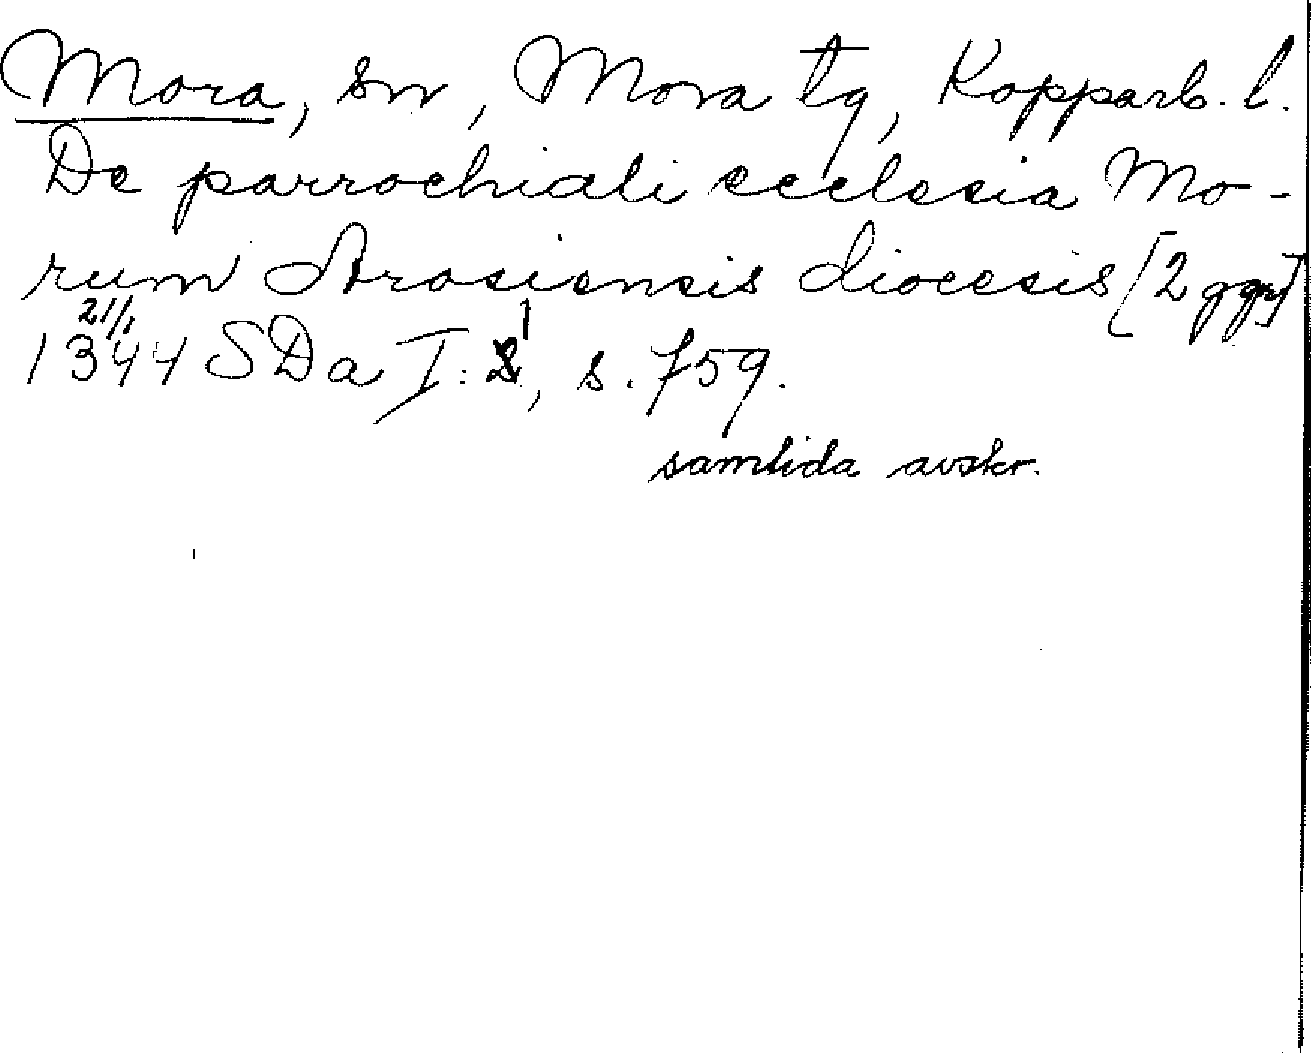 Mora, sn, Mora tg, Kopparb. l.
De parrochiali ecclesia Mo-
rum Arosiensis diocesis [2 ggr]
21/1
1344 SDa I:1, s. 759.
samtida avskr.